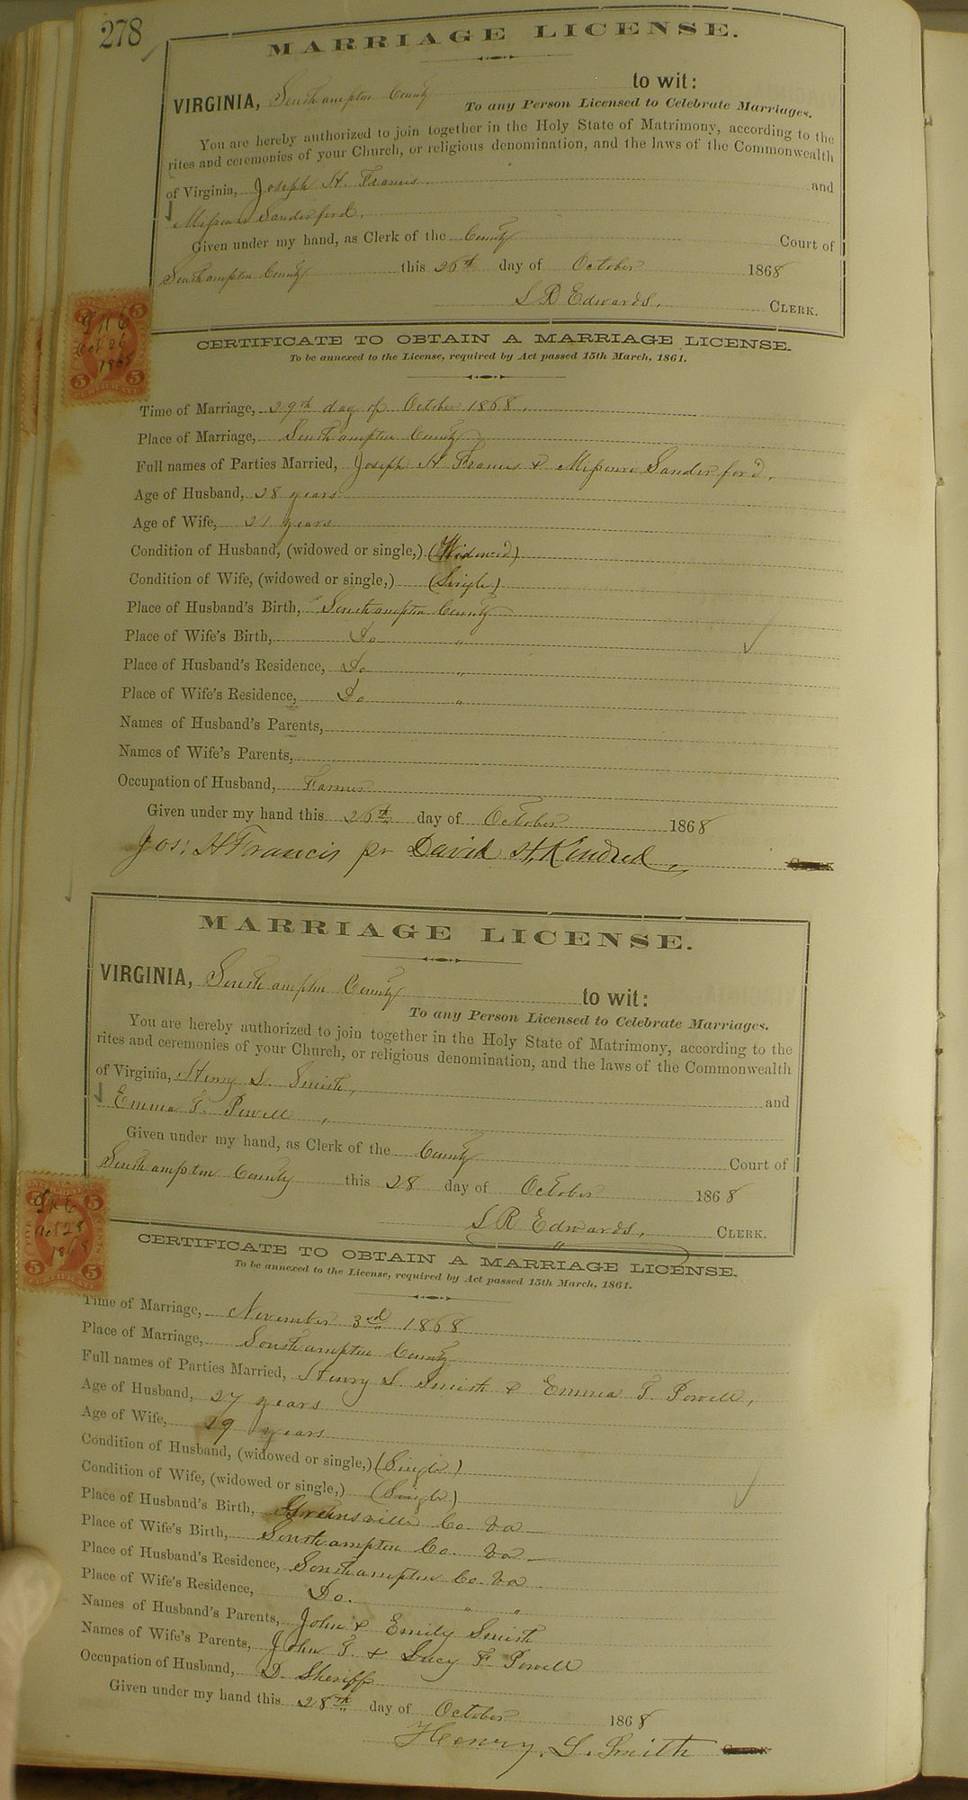 278
MARRIAGE LICENSE.
VIRGINIA, Southampton County to wit:
To any Person Licensed to Celebrate Marriages.
You are hereby authorized to join together in the Holy State of Matrimony, according to the
rites and ceremonies of your Church, or religious denomination, and the laws of the Commonwealth
of Virginia, Joseph H. Francis and
Missouri Sanderford.
Given under my hand, as Clerk of the County Court of
Southampton County this 26th day of October 1868
L R Edwards, CLERK.
5 5
Oct 26
1868
5 5
CERTIFICATE
CERTIFICATE TO OBTAIN A MARRIAGE LICENSE.
To be annexed to the License, required by Act passed 15th March, 1861.
Time of Marriage, 29th day of October 1868.
Place of Marriage, Southampton County
Full names of Parties Married, Joseph H Francis & Missouri Sanderford.
Age of Husband, 28 years
Age of Wife, 21 years
Condition of Husband, (widowed or single,) (Widowed)
Condition of Wife, (widowed or single,) (Single)
Place of Husband's Birth, Southampton County
Place of Wife's Birth, Do "
Place of Husband's Residence, Do "
Place of Wife's Residence, Do "
Names of Husband's Parents,
Names of Wife's Parents,
Occupation of Husband, Farmer
Given under my hand this 26th day of October 1868
Jos: H Francis pr David H. Kindred, CLERK
MARRIAGE LICENSE.
VIRGINIA, Southampton County to wit:
To any Person Licensed to Celebrate Marriages.
You are hereby authorized to join together in the Holy State of Matrimony, according to the
rites and ceremonies of your Church, or religious denomination, and the laws of the Commonwealth
of Virginia, Henry S. Smith, and
Emma T. Powell,
Given under my hand, as Clerk of the County Court of
Southampton County this 28 day of October 1868
L R Edwards, CLERK.
5 5
Oct 28
1868
5 5
CERTIFICATE TO OBTAIN A MARRIAGE LICENSE.
To be annexed to the License, required by Act passed 15th March, 1861.
Time of Marriage, November 3rd 1868
Place of Marriage, Southampton County
Full names of Parties Married, Henry S. Smith & Emma T. Powell,
Age of Husband, 27 years
Age of Wife, 19 years
Condition of Husband, (widowed or single,) (Single)
Condition of Wife, (widowed or single,) (Single)
Place of Husband's Birth, Greensville Co. Va
Place of Wife's Birth, Southampton Co. Va
Place of Husband's Residence, Southampton Co. Va
Place of Wife's Residence, Do. " "
Names of Husband's Parents, John & Emily Smith
Names of Wife's Parents, John T. & Lucy F. Powell
Occupation of Husband, D. Sheriff
Given under my hand this 28th day of October 1868
Henry S. Smith CLERK